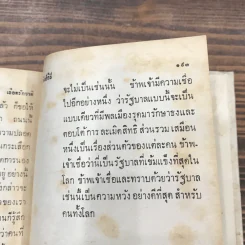 ๑๕๓
จะไม่เป็นเช่นนั้น ข้าพเจ้ามีความเชื่อ
ไปอีกอย่างหนึ่ง ว่ารัฐบาลแบบนี้จะเป็น
แบบเดียวที่มีพลเมืองรุคมารักษาธงและ
ตอบโต้การละเมิดสิทธิส่วนรวมเสมือน
หนึ่งเป็นเรื่องส่วนตัวของแต่ละคน ข้าพ-
เจ้าเชื่อว่าที่นี่เป็นรัฐบาลที่เข้มแข็งที่สุดใน
โลก ข้าพเจ้าเชื่อและทราบด้วยว่ารัฐบาล
เช่นนี้เป็นความหวังอย่างดีที่สุด สำหรับ
คนทั้งโลก